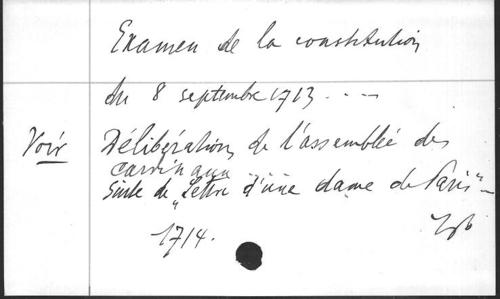 Examen de la constitution
du 8 septembre 1713 . - -
Voir Délibérations de l'assemblée des
cardinaux
Suite de "Lettre d'une dame de Paris"-
1714.